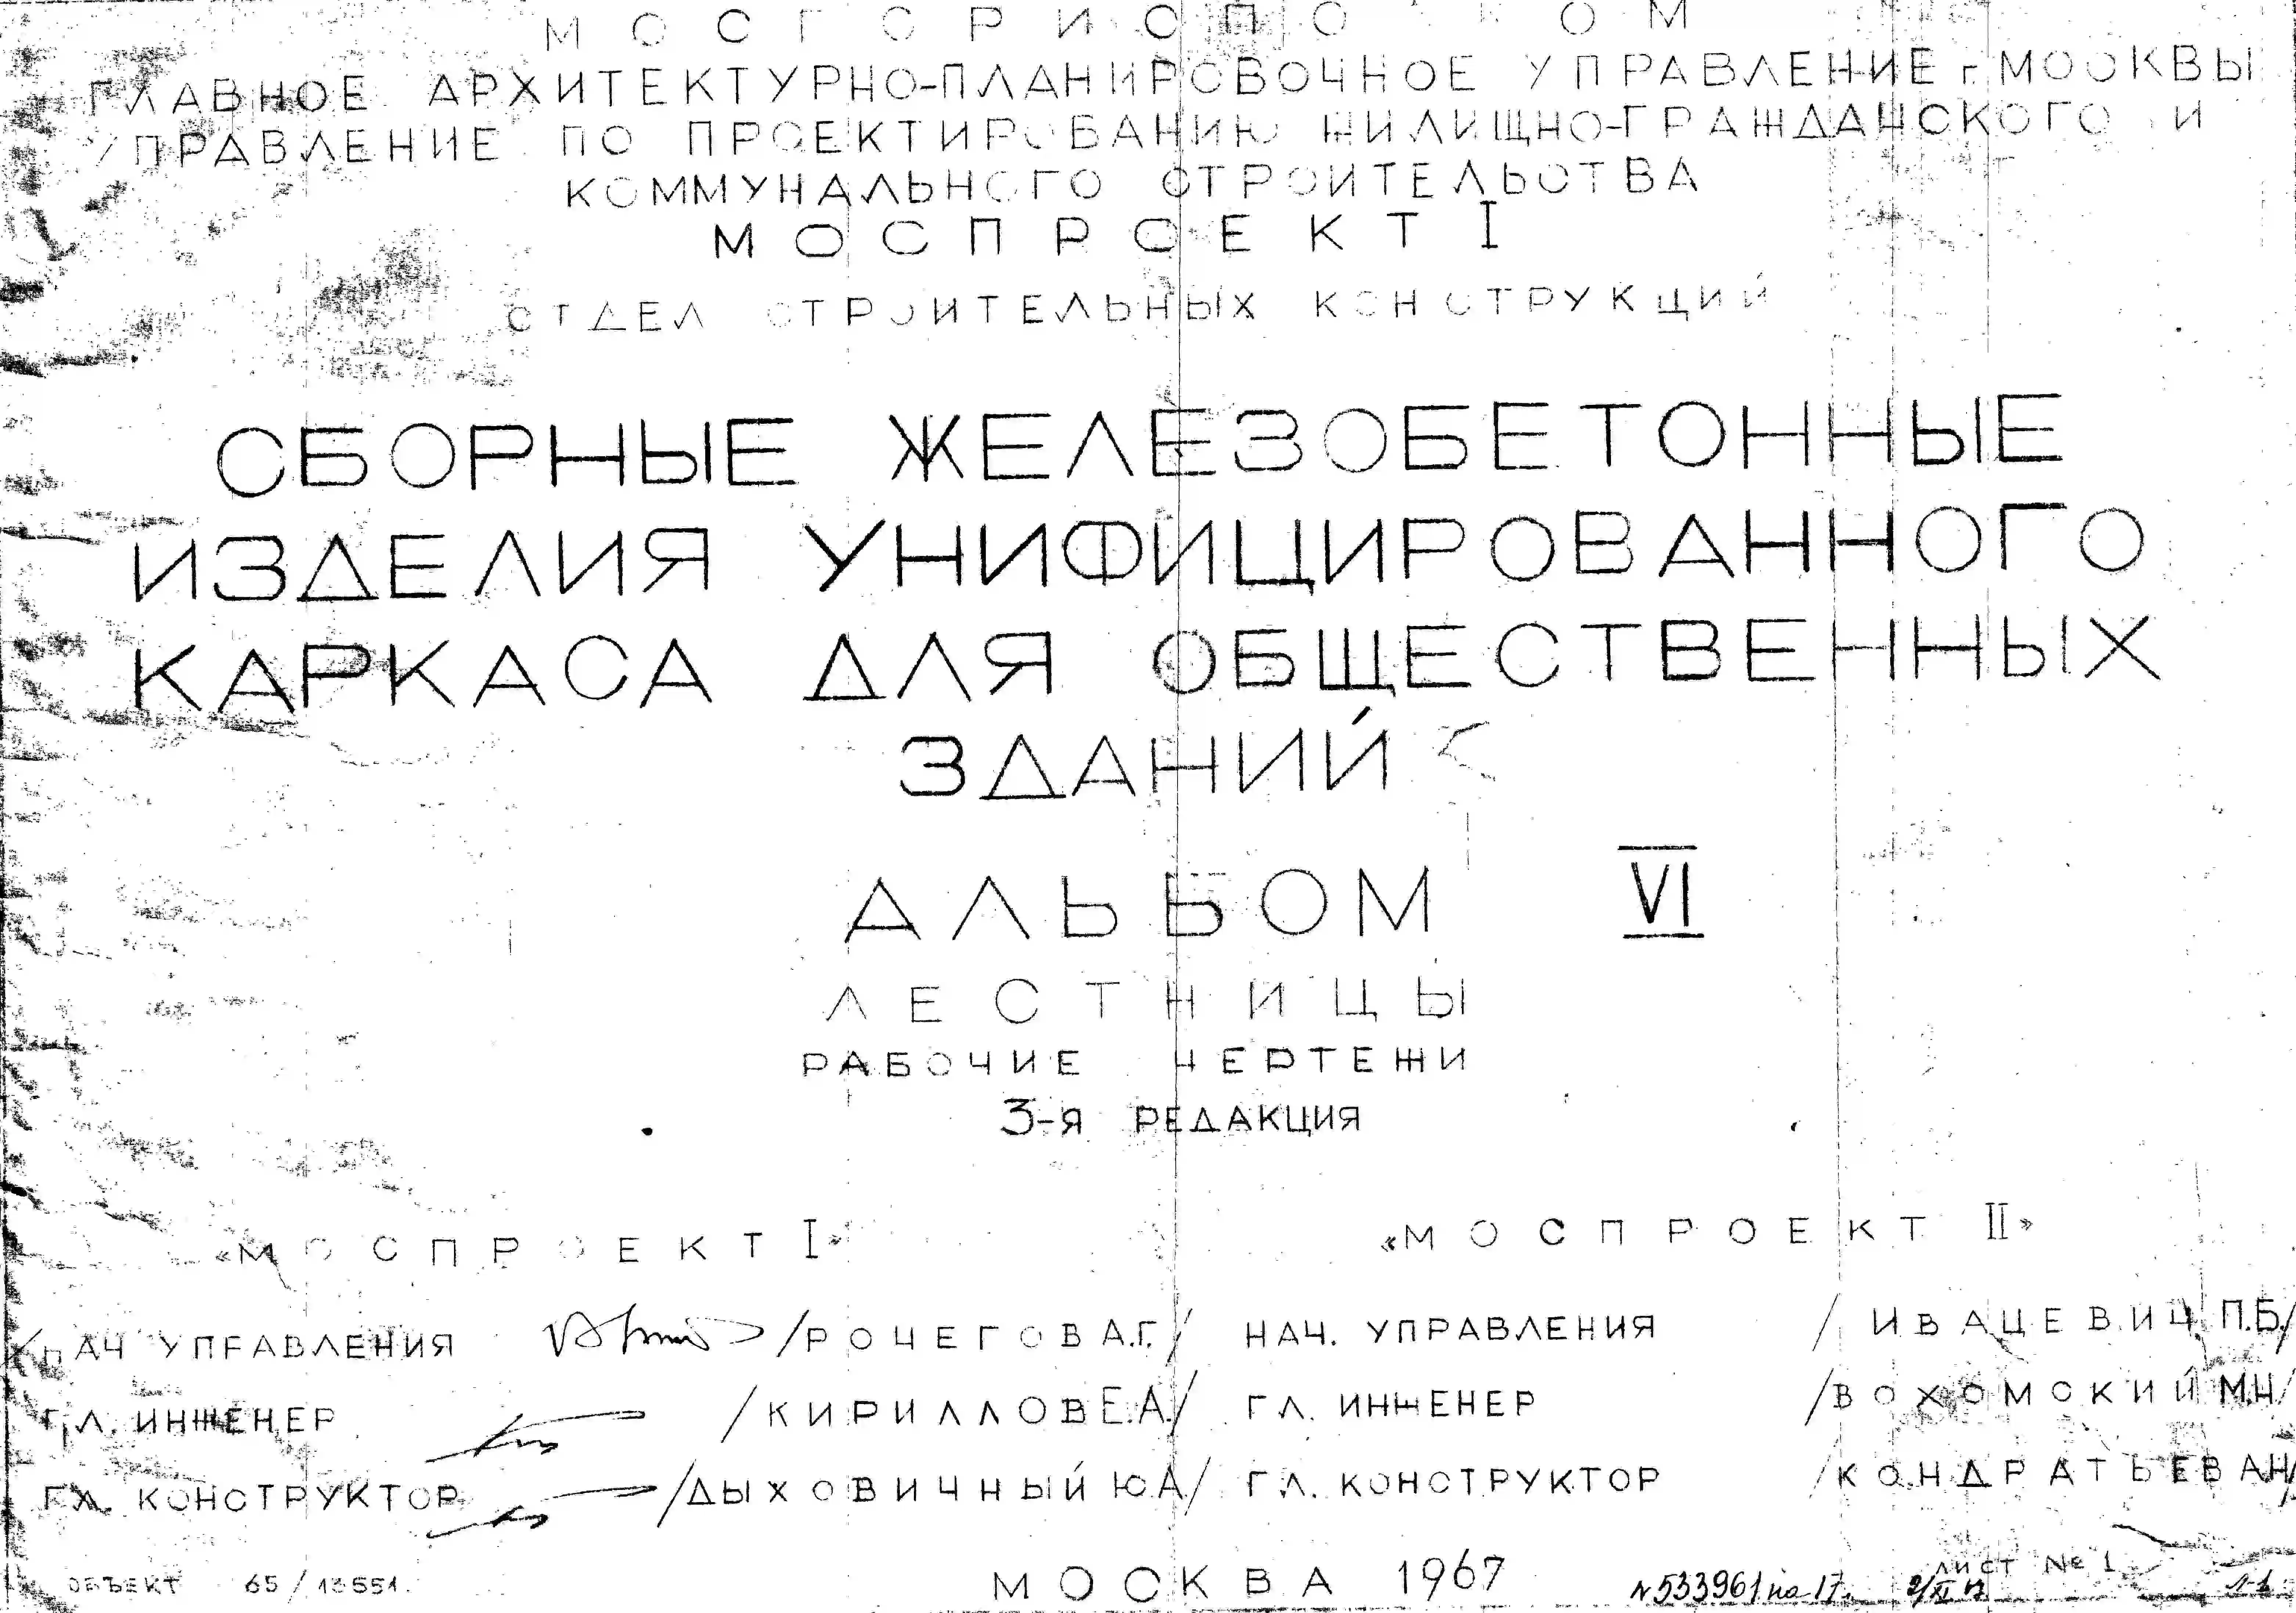 МОСГОРИСПОЛКОМ
ГЛАВНОЕ АРХИТЕКТУРНО-ПЛАНИРОВОЧНОЕ УПРАВЛЕНИЕ г. МОСКВЫ
УПРАВЛЕНИЕ ПО ПРОЕКТИРОВАНИЮ ЖИЛИЩНО-ГРАЖДАНСКОГО И
КОММУНАЛЬНОГО СТРОИТЕЛЬСТВА
МОСПРОЕКТ I
ОТДЕЛ СТРОИТЕЛЬНЫХ КОНСТРУКЦИЙ
СБОРНЫЕ ЖЕЛЕЗОБЕТОННЫЕ
ИЗДЕЛИЯ УНИФИЦИРОВАННОГО
КАРКАСА ДЛЯ ОБЩЕСТВЕННЫХ
ЗДАНИЙ
АЛЬБОМ VI
ЛЕСТНИЦЫ
РАБОЧИЕ ЧЕРТЕЖИ
3-я РЕДАКЦИЯ
«МОСПРОЕКТ I» «МОСПРОЕКТ II»
НАЧ УПРАВЛЕНИЯ /РОЧЕГОВ А.Г./ НАЧ. УПРАВЛЕНИЯ /ИВАЦЕВИЧ П.Б./
ГЛ. ИНЖЕНЕР /КИРИЛЛОВ Е.А./ ГЛ. ИНЖЕНЕР /ВОХОМСКИЙ М.Н/
ГЛ. КОНСТРУКТОР /ДЫХОВИЧНЫЙ Ю.А/ ГЛ. КОНСТРУКТОР /КОНДРАТЬЕВ А.Н/
ОБЪЕКТ 65/13551. МОСКВА 1967 N533961 на 17 л. ЛИСТ № 1